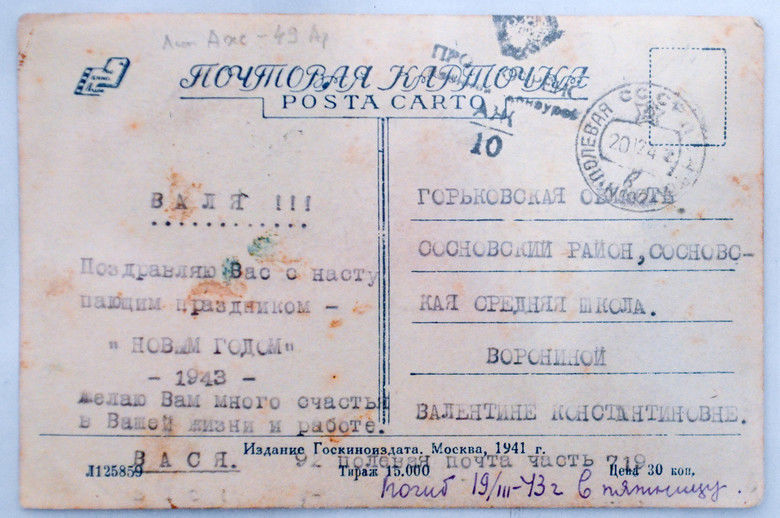 ПОЧТОВАЯ КАРТОЧКА
POSTA CARTO
АЖ
10
ПОЛЕВАЯ
СССР
ВАЛЯ !!!
Поздравляю Вас с насту
пающим праздником –
" НОВЫМ ГОДОМ"
– 1943 –
желаю Вам много счастья
в Вашей жизни и работе.
ВАСЯ.
ГОРЬКОВСКАЯ ОБЛАСТЬ
СОСНОВСКИЙ РАЙОН,СОСНОВС-
КАЯ СРЕДНЯЯ ШКОЛА.
ВОРОНИНОЙ
ВАЛЕНТИНЕ КОНСТАНТИНОВНЕ.
92 полевая почта часть 719
Издание Госкиноиздата. Москва, 1941 г.
Л125859
Тираж 15.000
Цена 30 коп.
Погиб 19/III-43г в пятницу.